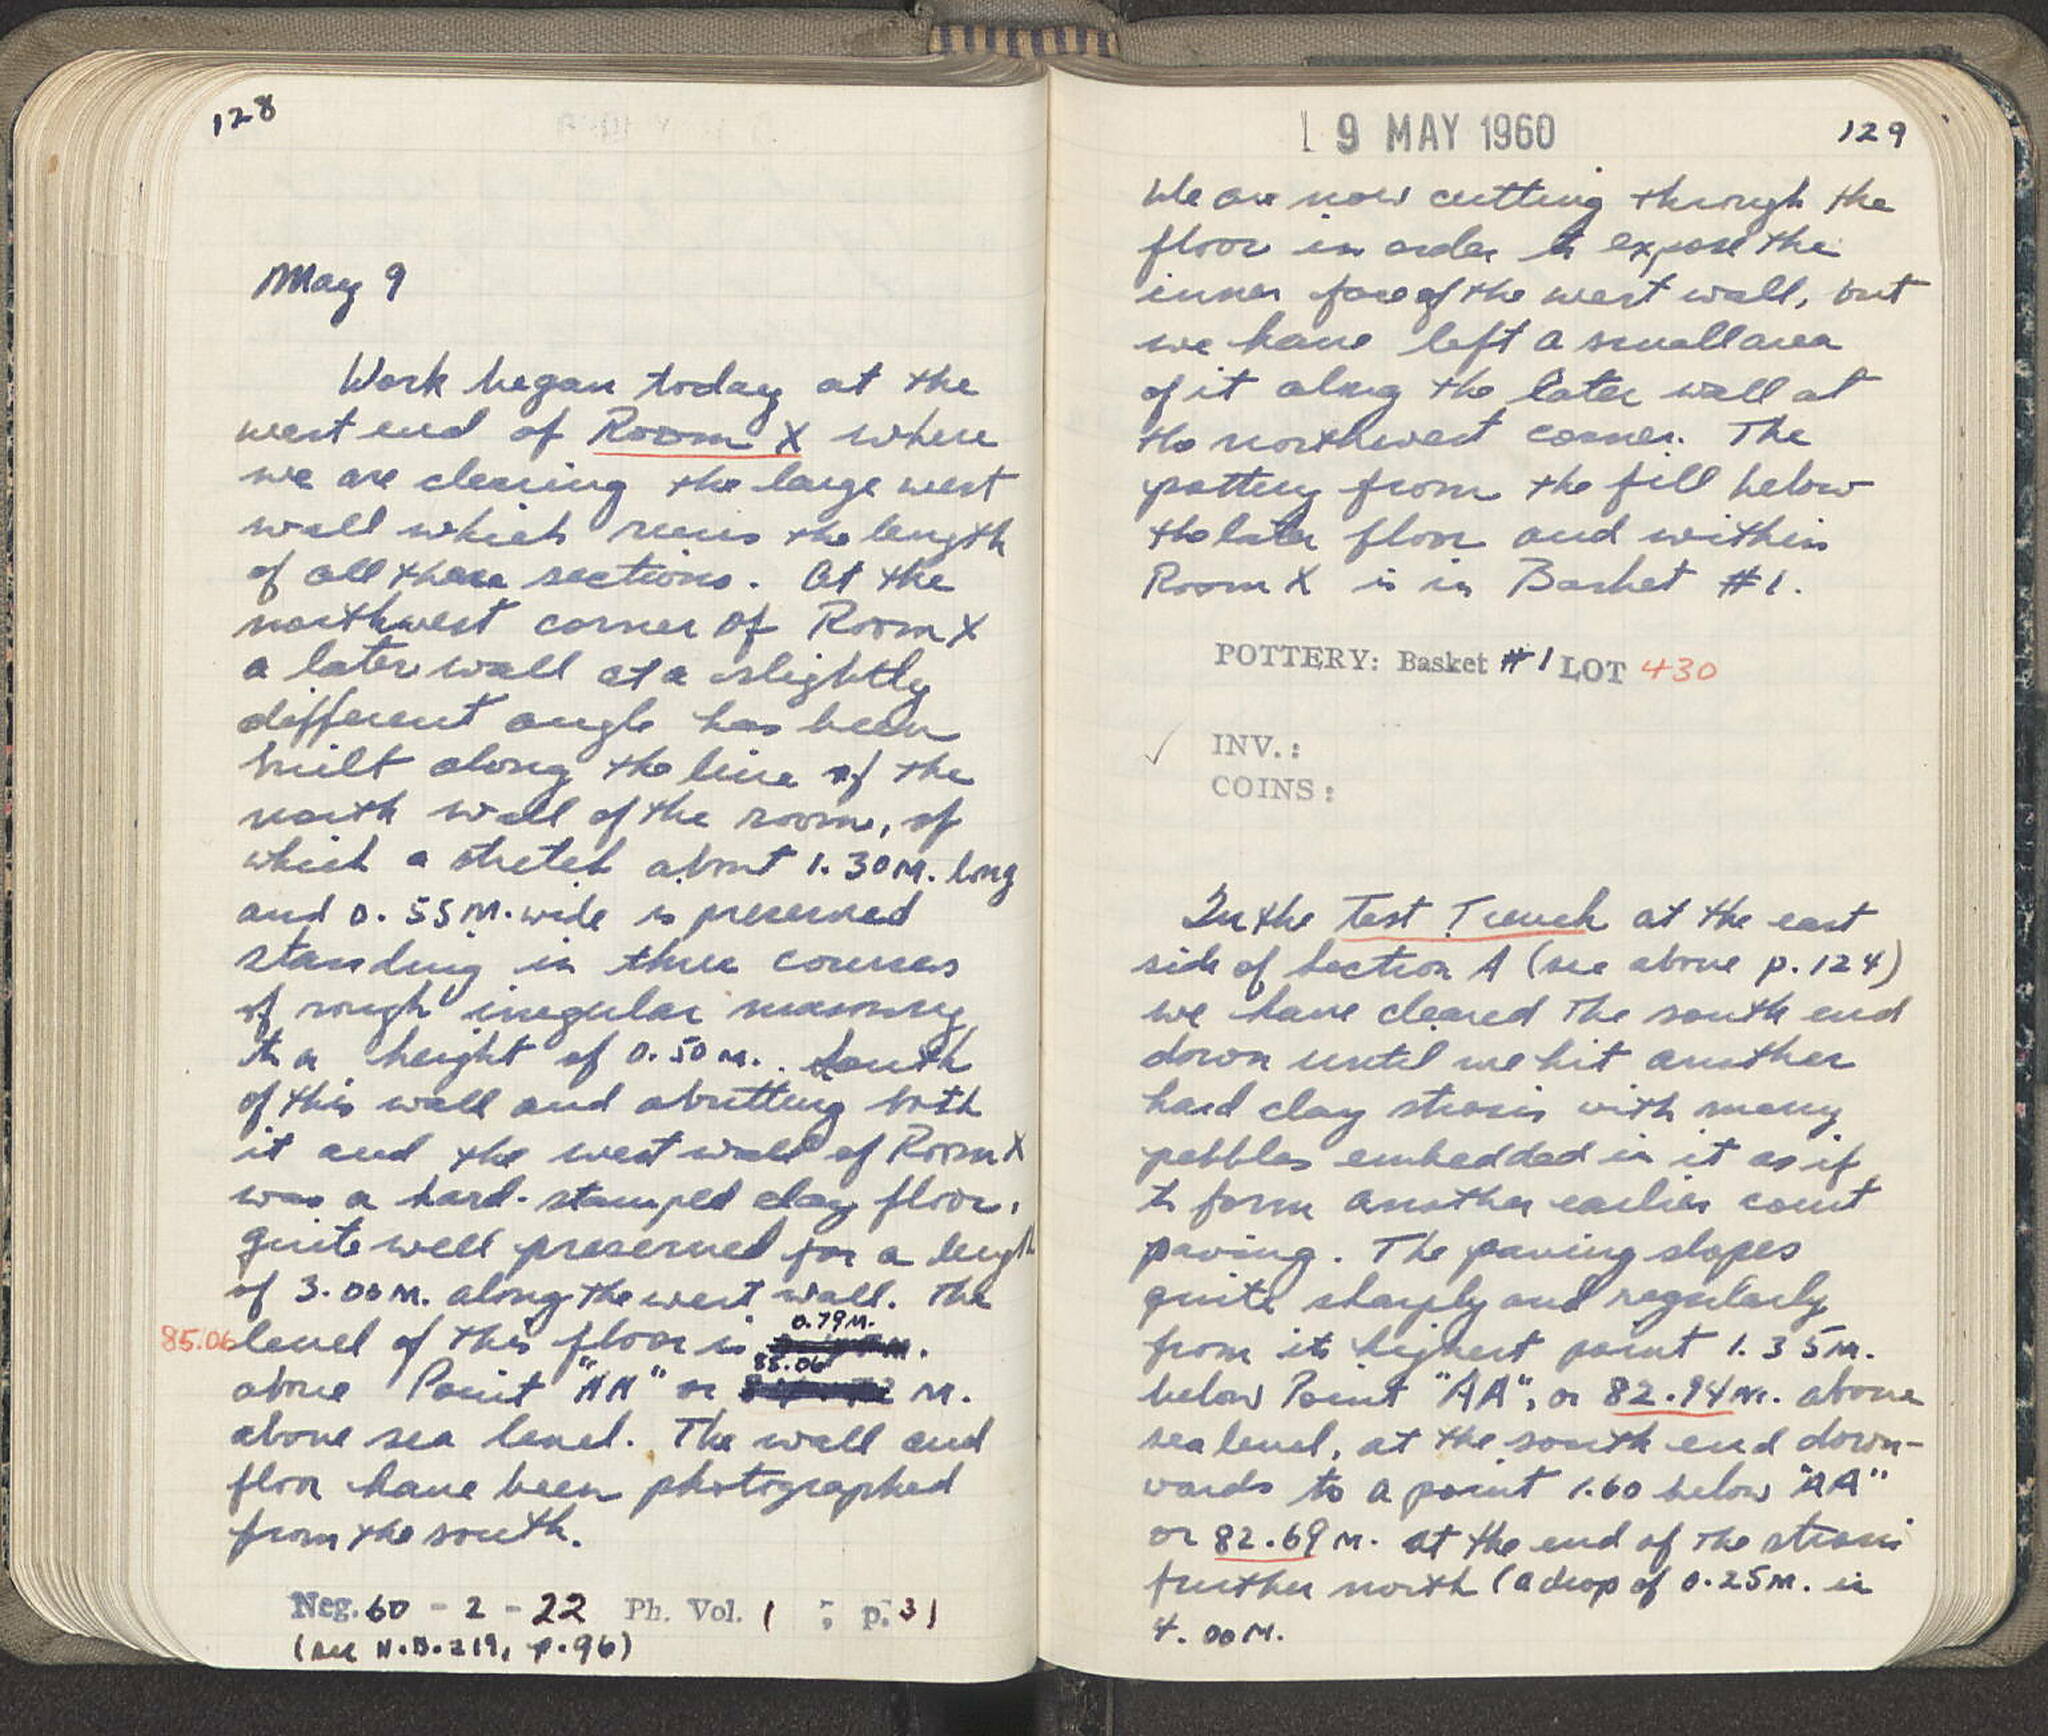 128
May 9
Work began today at the
west end of Room X where
we are clearing the large west
wall which runs the length
of all these sections. At the
northwest corner of Room X
a later wall at a slightly
different angle has been
built along the line of the
north wall of the room, of
which a stretch about 1.30 M. long
and 0.55 M. wide is preserved
standing in three courses
of rough irregular masonry
to a height of 0.50 M.. South
of this wall and abutting both
it and the west wall of Room X
was a hard-stamped clay floor,
quite well preserved for a length
of 3.00 M. along the west wall. The
0.79 M.
85.06 level of this floor is M.
85.06
above Point "AA" or M.
above sea level. The wall and
floor have been photographed
from the south.
Neg. 60 - 2 - 22 Ph. Vol. 1 ; p. 31
(see N.B. 219, p. 96)
9 MAY 1960
129
We are now cutting through the
floor in order to expose the
inner face of the west wall, but
we have left a small area
of it along the later wall at
the northwest corner. The
pottery from the fill below
the later floor and within
Room X is in Basket #1.
POTTERY: Basket #1 LOT 430
✓ INV.:
COINS:
In the Test Trench at the east
side of Section A (see above p. 124)
we have cleared the south end
down until we hit another
hard clay strosis with many
pebbles embedded in it as if
to form another earlier court
paving. The paving slopes
quite sharply and regularly
from its highest point 1.35 M.
below Point "AA", or 82.94 M. above
sea level, at the south end down-
wards to a point 1.60 below "AA"
or 82.69 M. at the end of the strosis
further north (a drop of 0.25 M. in
4.00 M.